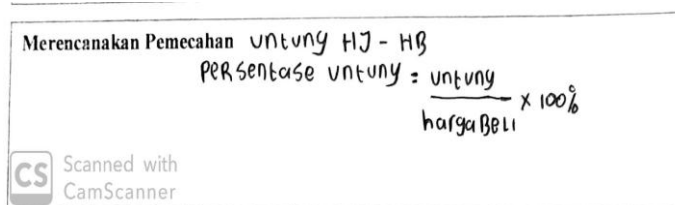 Merencanakan Pemecahan untung HJ - HB
Persentase untung = untung
harga Beli × 100%
CS Scanned with
CamScanner